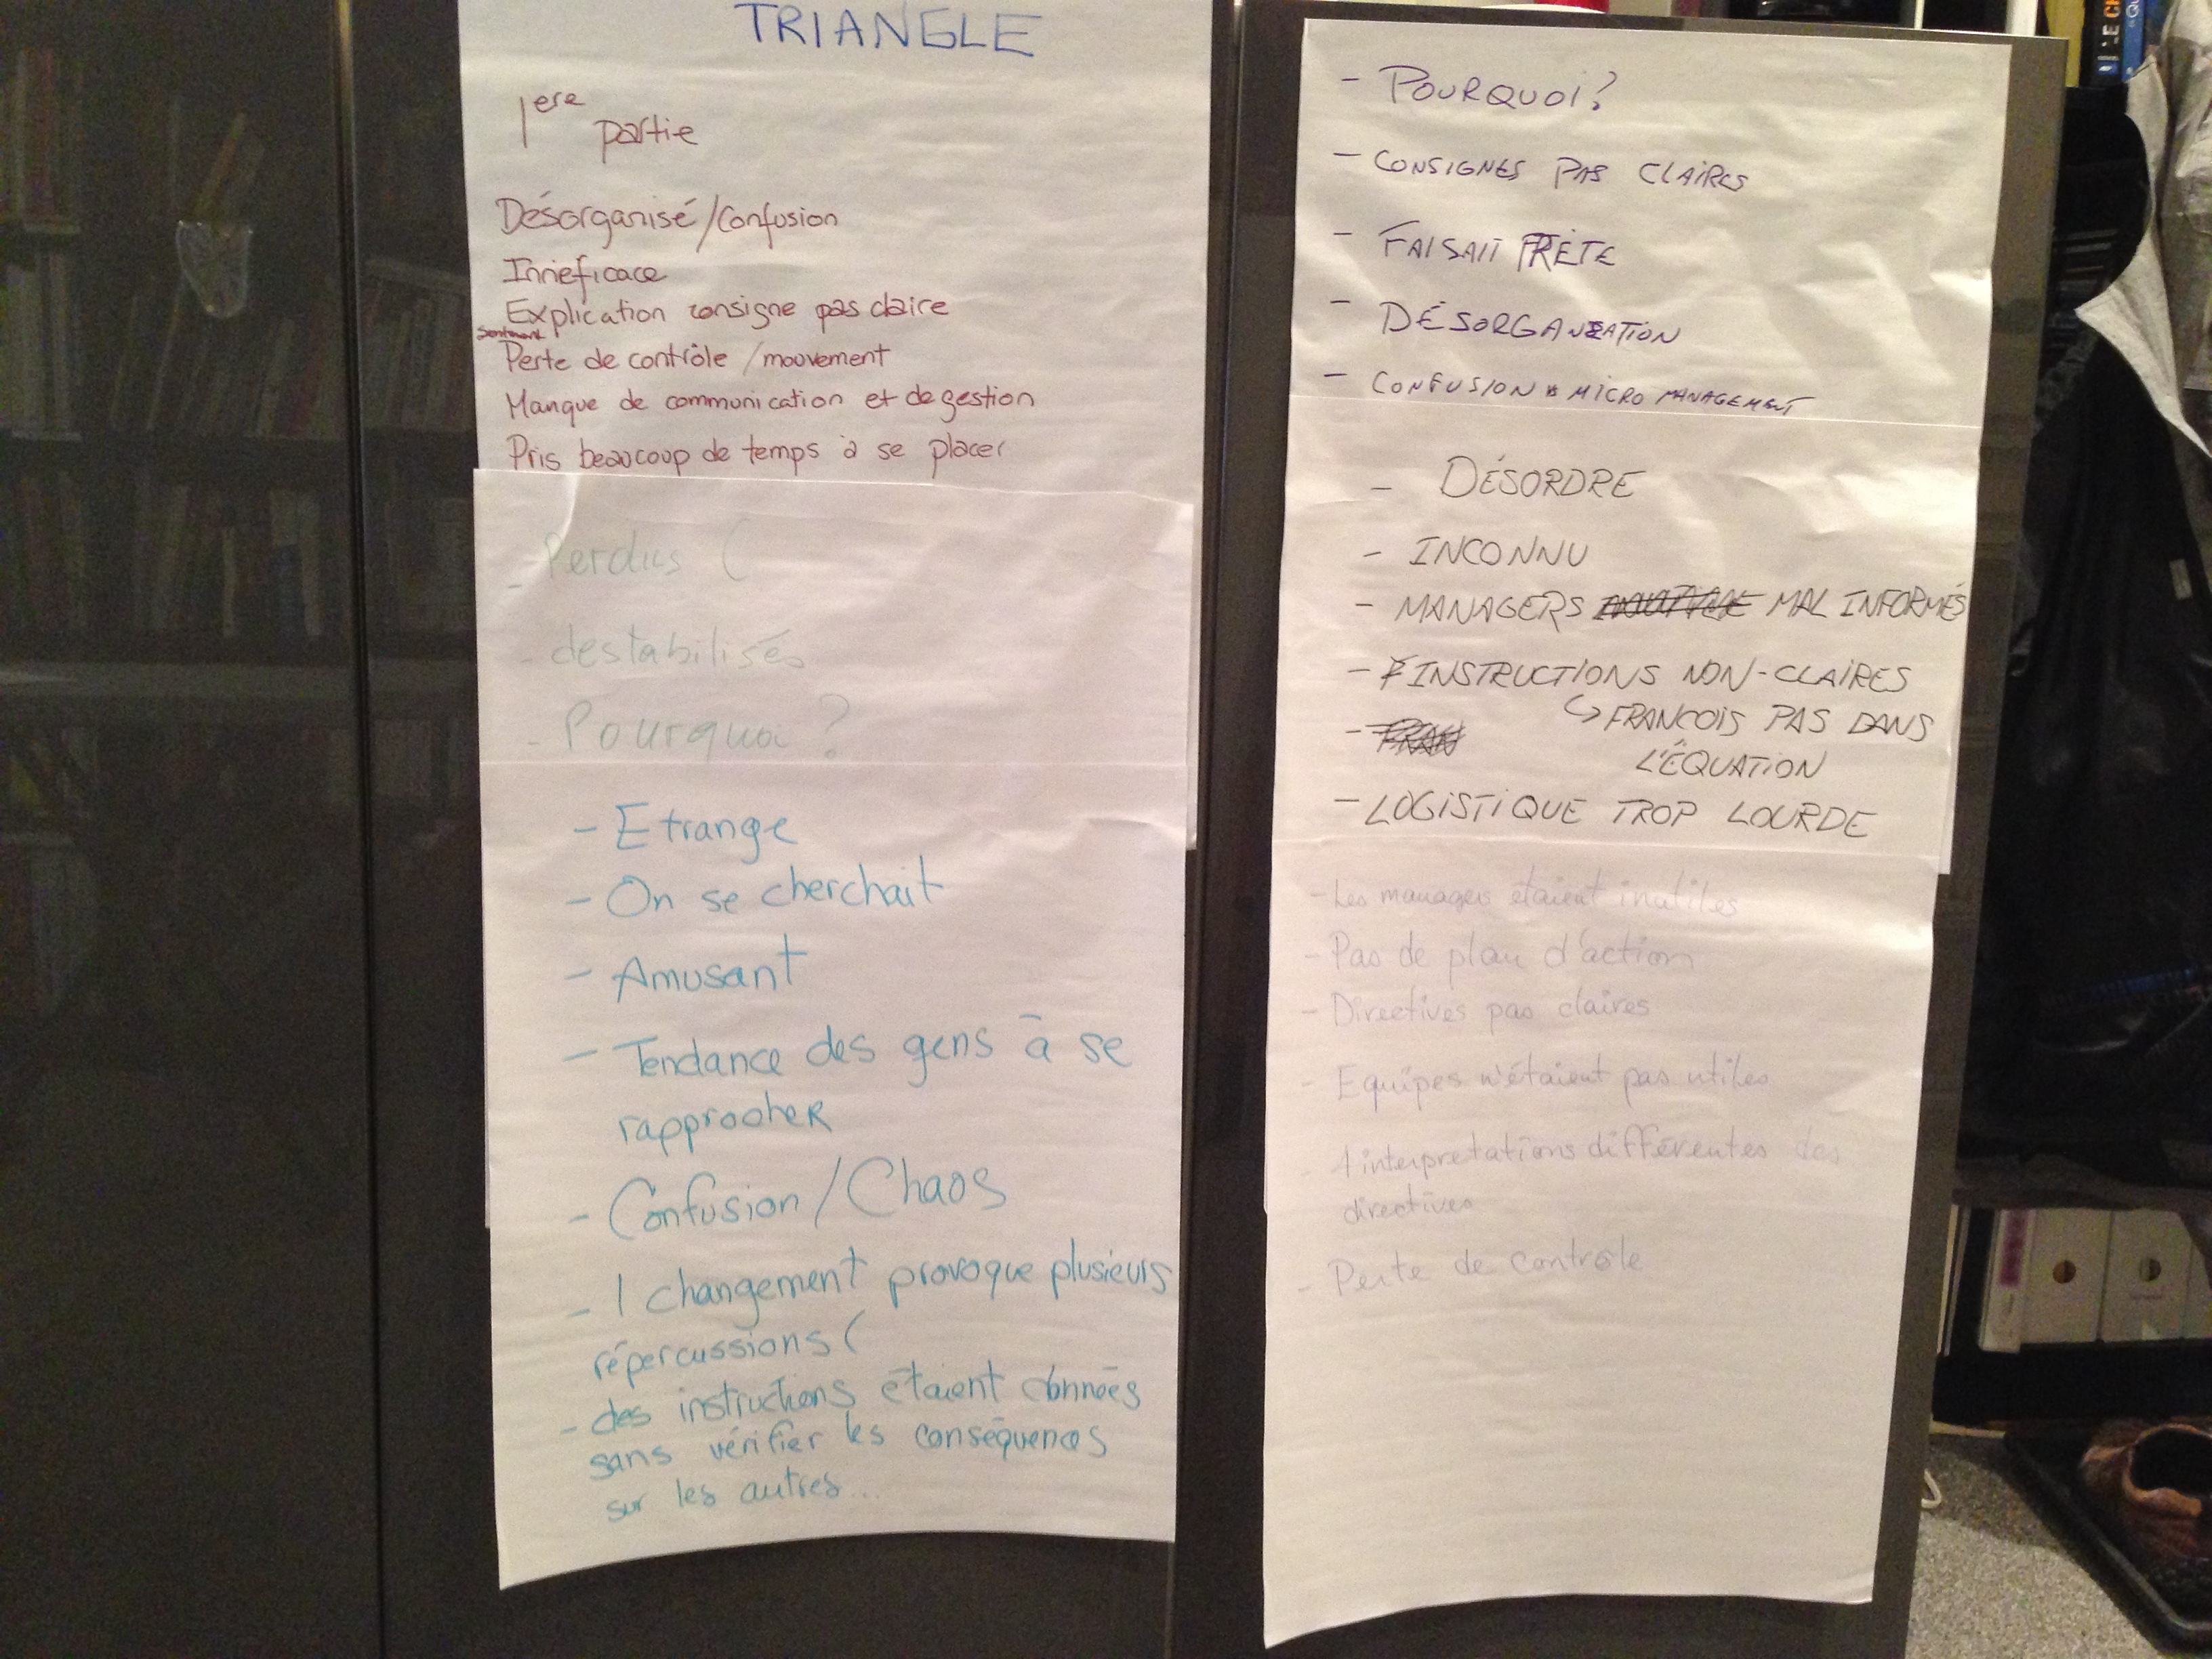 TRIANGLE
1ere partie
Désorganisé/Confusion
Innéficace
Explication consigne pas claire
Sentiment
Perte de contrôle / mouvement
Manque de communication et de gestion
Pris beaucoup de temps à se placer
- Perdus (
- destabilisés
- Pourquoi ?
- Etrange
- On se cherchait
- Amusant
- Tendance des gens à se
rapprocheR
- Confusion / Chaos
- 1 changement provoque plusieurs
répercussions (
- des instructions étaient données
sans vérifier les conséquences
sur les autres...
- POURQUOI?
- CONSIGNES PAS CLAIRES
- FAISAIT
- DÉSORGANISATION
- CONFUSION MICRO MANAGEMENT
- DÉSORDRE
- INCONNU
- MANAGERS MAL INFORMÉS
- INSTRUCTIONS NON-CLAIRES
↳ FRANCOIS PAS DANS
L'ÉQUATION
- LOGISTIQUE TROP LOURDE
- Les managers étaient inutiles
- Pas de plan d'action
- Directives pas claires
- Equipes n'étaient pas utiles
- interpretations différentes des
directives
- Perte de contrôle
LE CH